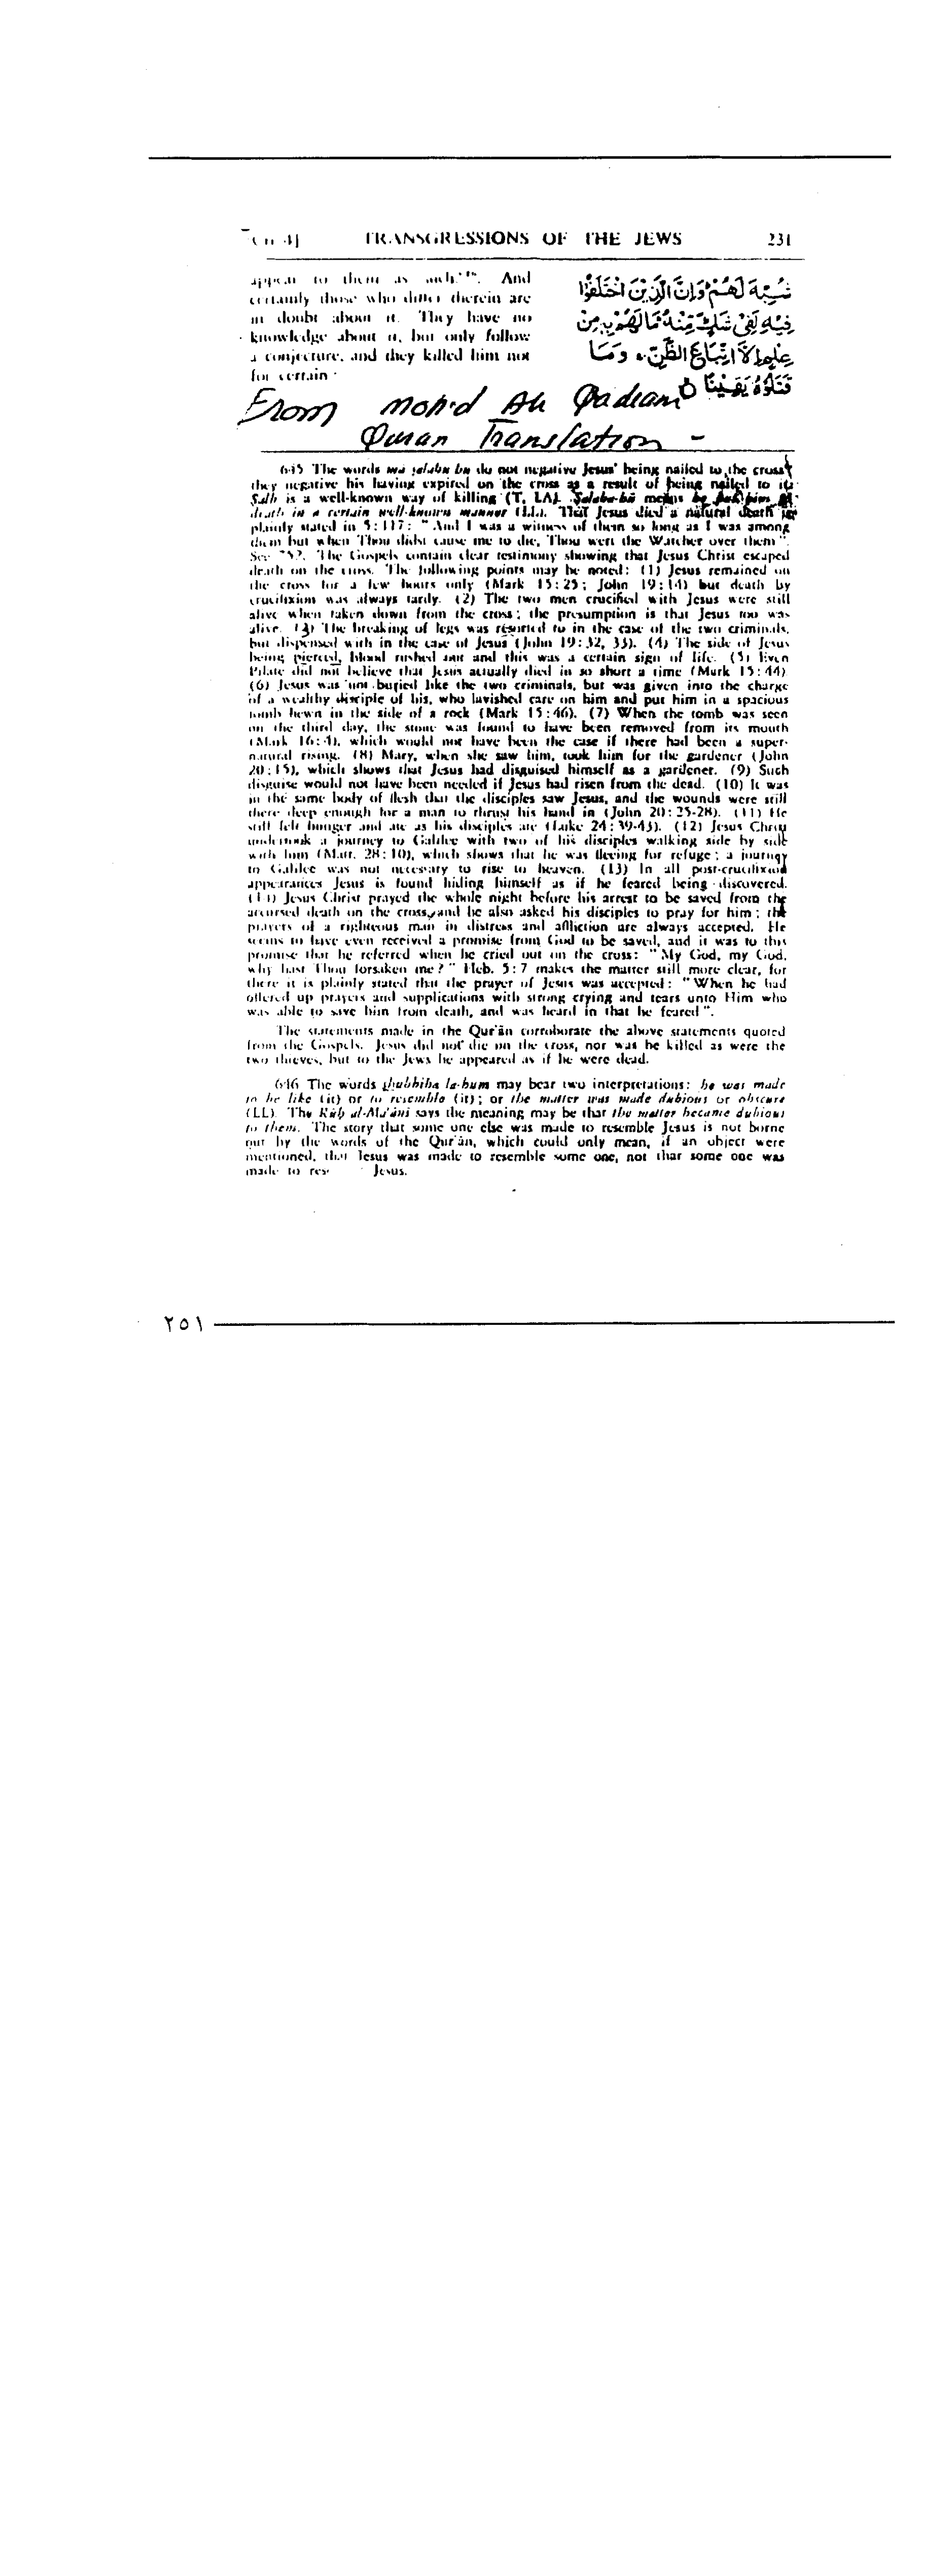 Ch. 4] TRANSGRESSIONS OF THE JEWS 231
appear to them as such. And
certainly those who differ therein are
in doubt about it. They have no
knowledge about it, but only follow
a conjecture, and they killed him not
for certain:
شُبِّهَ لَهُمْ وَإِنَّ الَّذِينَ اخْتَلَفُوا
فِيهِ لَفِي شَكٍّ مِّنْهُ مَا لَهُم بِهِ مِنْ
عِلْمٍ إِلَّا اتِّبَاعَ الظَّنِّ، وَمَا
قَتَلُوهُ يَقِينًا
From Moh'd Ali Qadiani
Quran Translation -
645 The words ma salabu hu do not negative Jesus' being nailed to the cross;
they negative his having expired on the cross as a result of being nailed to it.
Salb is a well-known way of killing (T, LA). Salaba-hu means he put him to
death in a certain well-known manner (LL). That Jesus died a natural death is
plainly stated in 5:117: "And I was a witness of them so long as I was among
them but when Thou didst cause me to die, Thou wert the Watcher over them".
See 752. The Gospels contain clear testimony showing that Jesus Christ escaped
death on the cross. The following points may be noted: (1) Jesus remained on
the cross for a few hours only (Mark 15:25; John 19:14) but death by
crucifixion was always tardy. (2) The two men crucified with Jesus were still
alive when taken down from the cross; the presumption is that Jesus too was
alive. (3) The breaking of legs was resorted to in the case of the two criminals,
but dispensed with in the case of Jesus (John 19:32, 33). (4) The side of Jesus
being pierced, blood rushed out and this was a certain sign of life. (5) Even
Pilate did not believe that Jesus actually died in so short a time (Mark 15:44)
(6) Jesus was not buried like the two criminals, but was given into the charge
of a wealthy disciple of his, who lavished care on him and put him in a spacious
tomb hewn in the side of a rock (Mark 15:46). (7) When the tomb was seen
on the third day, the stone was found to have been removed from its mouth
(Mark 16:4), which would not have been the case if there had been a super-
natural rising. (8) Mary, when she saw him, took him for the gardener (John
20:15), which shows that Jesus had disguised himself as a gardener. (9) Such
disguise would not have been needed if Jesus had risen from the dead. (10) It was
in the same body of flesh that the disciples saw Jesus, and the wounds were still
there deep enough for a man to thrust his hand in (John 20:25-28). (11) He
still felt hunger and ate as his disciples ate (Luke 24:39-43). (12) Jesus Christ
undertook a journey to Galilee with two of his disciples walking side by side
with him (Matt. 28:10), which shows that he was fleeing for refuge; a journey
to Galilee was not necessary to rise to heaven. (13) In all post-crucifixion
appearances Jesus is found hiding himself as if he feared being discovered.
(14) Jesus Christ prayed the whole night before his arrest to be saved from the
accursed death on the cross, and he also asked his disciples to pray for him; the
prayers of a righteous man in distress and affliction are always accepted. He
seems to have even received a promise from God to be saved, and it was to this
promise that he referred when he cried out on the cross: "My God, my God,
why hast Thou forsaken me?" Heb. 5:7 makes the matter still more clear, for
there it is plainly stated that the prayer of Jesus was accepted: "When he had
offered up prayers and supplications with strong crying and tears unto Him who
was able to save him from death, and was heard in that he feared".
The statements made in the Qur'án corroborate the above statements quoted
from the Gospels. Jesus did not die on the cross, nor was he killed as were the
two thieves, but to the Jews he appeared as if he were dead.
646 The words shubbiha la-hum may bear two interpretations: he was made
to be like (it) or to resemble (it); or the matter was made dubious or obscure
(LL). The Rúh al-Ma'áni says the meaning may be that the matter became dubious
to them. The story that some one else was made to resemble Jesus is not borne
out by the words of the Qur'án, which could only mean, if an object were
mentioned, that Jesus was made to resemble some one, not that some one was
made to res Jesus.
٢٥١